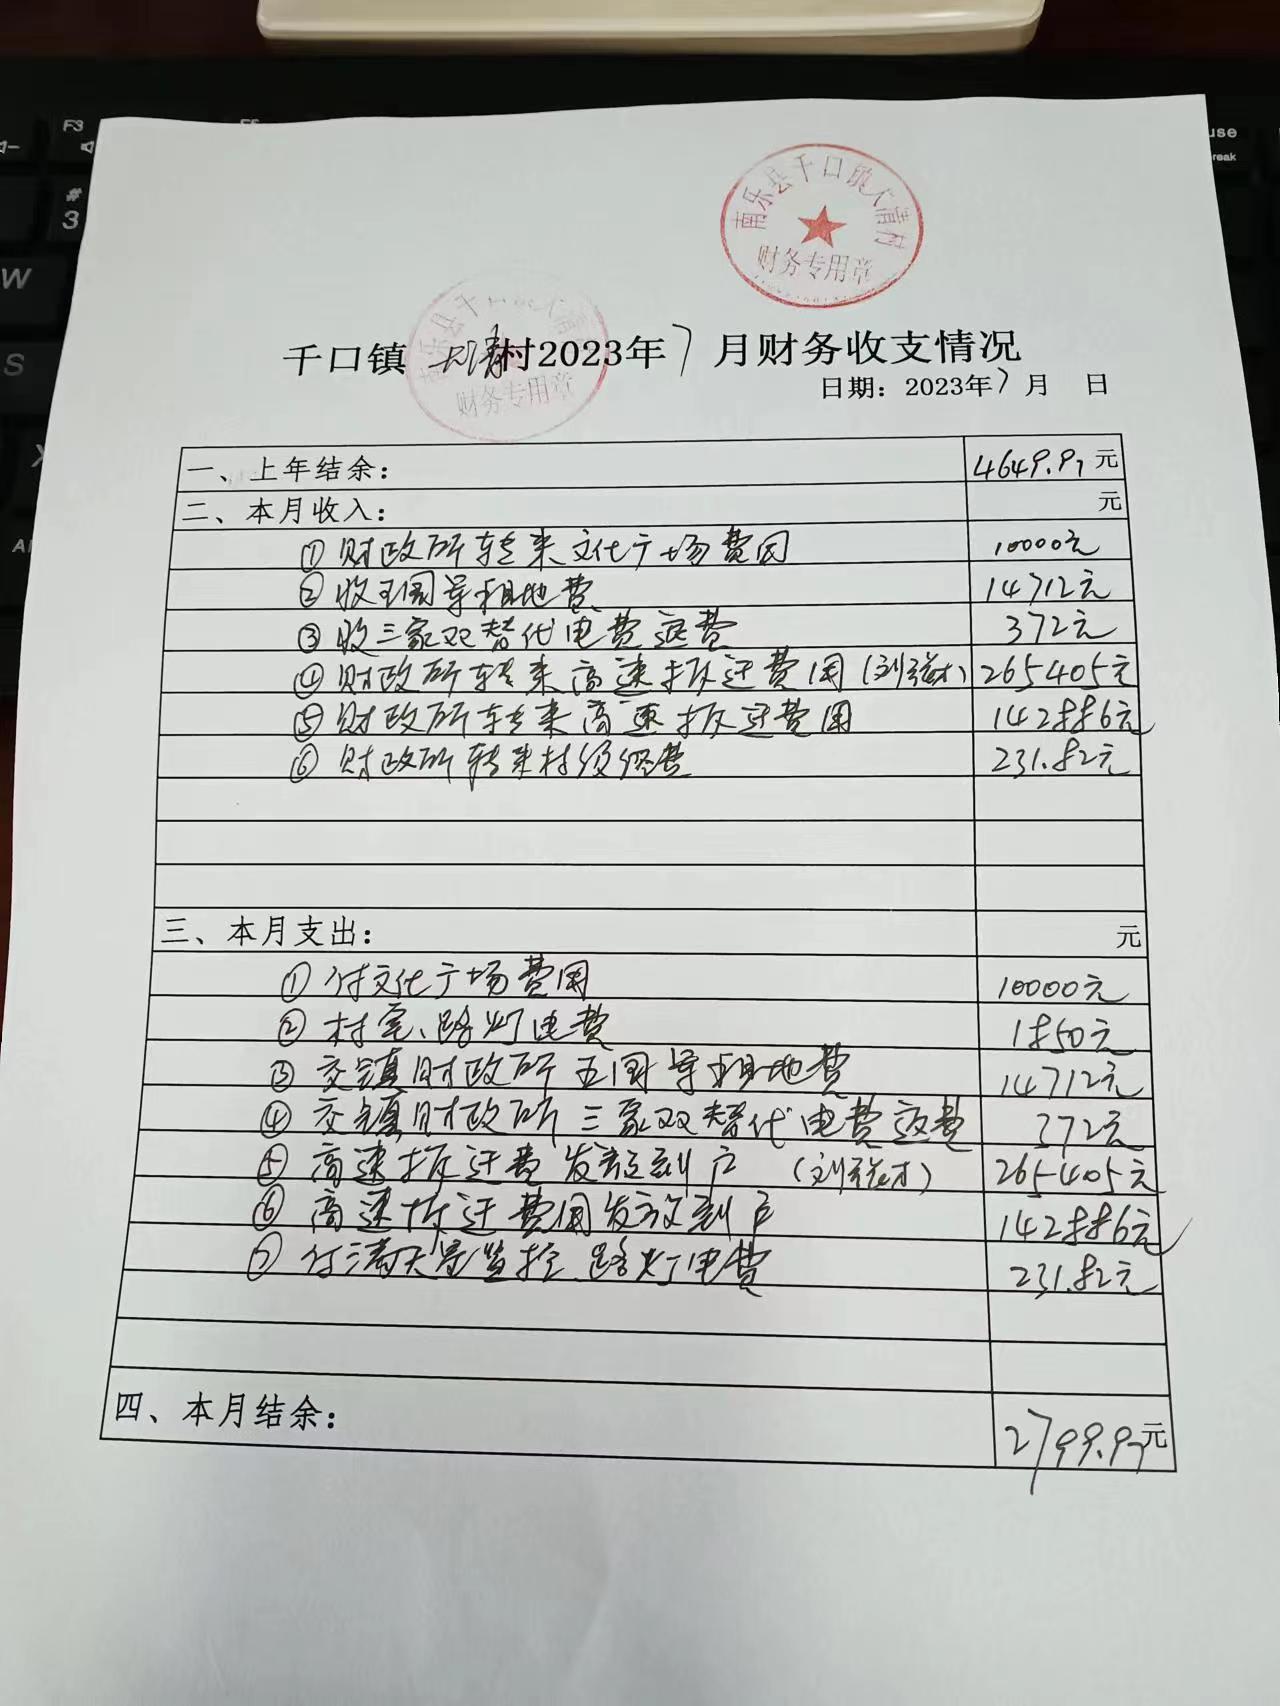 F3
#
3
W
S
use
reak
南乐县千口镇 清村
财务专用章
财务专用章
千口镇 村2023年7月财务收支情况
日期：2023年7月 日
一、上年结余： 4649.97元
二、本月收入： 元
①财政所转来文化广场费用 10000元
②收王国号租地费 14712元
③收三家双替代电费返费 372元
④财政所转来高速拆迁费用(刘 才) 265405元
⑤财政所转来高速拆迁费用 142886元
⑥财政所转来村级经费 231.82元
三、本月支出： 元
①付文化广场费用 10000元
②村室、路灯电费 1850元
③交镇财政所王国号租地费 14712元
④交镇财政所三家双替代电费返费 372元
⑤高速拆迁费发放到户 (刘 才) 265405元
⑥高速拆迁费用发放到户 142886元
⑦付满天星监控、路灯电费 231.82元
四、本月结余： 2799.97元